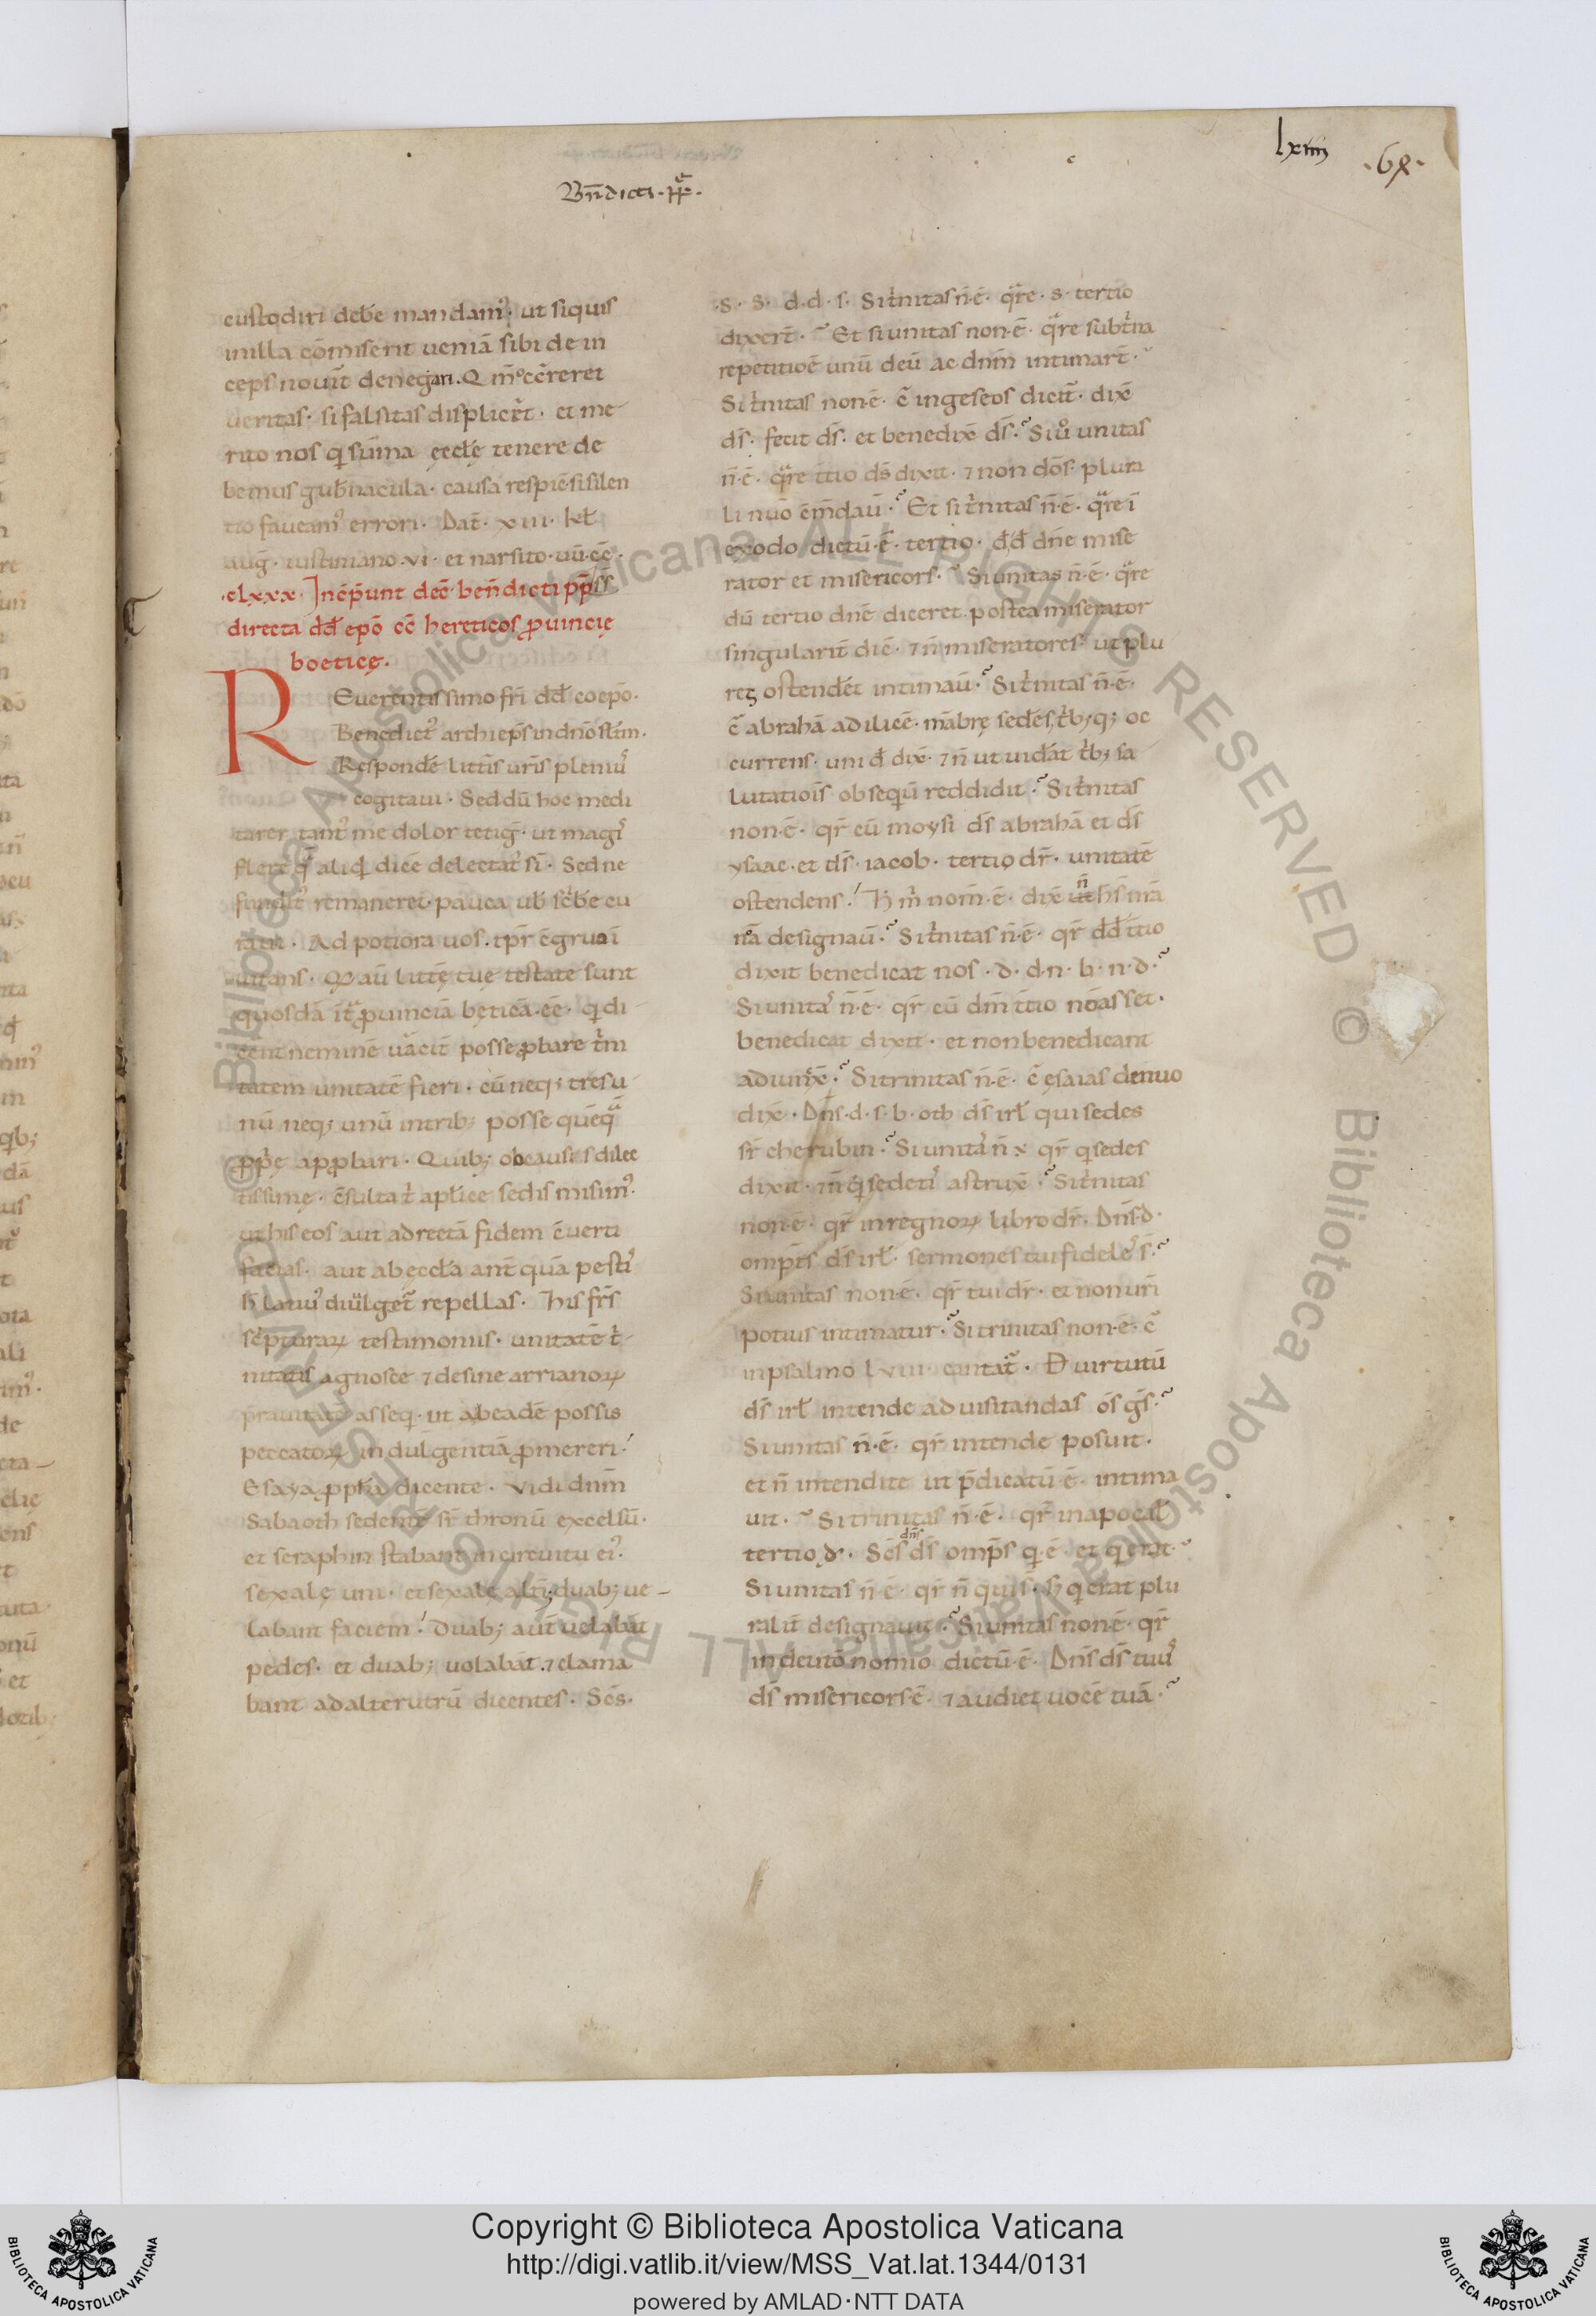 lxiiii
·68·
Bn̄dicti·pp̄·
custodiri deb̄e mandam᾽· ut siquis
inilla cōmiserit ueniā sibi de in
ceps nouit̄ denegari.
ueritas· si falsitas displicer̄t· et me
rito nos q̣ sūma ęcclę tenere de
bemus gub̄nacula· causa respic̄·si silen
tio faueam᾽ errori· Dat̄· xiii· kl̄
auḡ· iustiniano·vi· et narsito·uū·cc̄·
·clxxx· Inc̄p̄unt dec̄ ben̄dicti pp̄
directa dd̄ ep̄o cc̄ hereticos ꝓuincię
boeticę.
Reuerentissimo fr̄i dd̄ coep̄o·
Benedict᾽ archiep̄s in dn̄o sl̄tm·
Respondē litt̄is ur̄is pleni᾽
cogitaui· Sed dū hoc medi
tarer tant᾽ me dolor tetiḡ· ut magi᾽
flere q̄ aliq̣d dicē delectat᾽ sī· Sed ne
fundit᾽ remaneret· pauca ub̄ sc̄b̄e cu
raui· Ad potiora uos
uitans· Qm̄ aū littę tuę testate sunt
quosdā ꝓuinciā bęticā·ee· q̣ di
cent neminē uāciē posse ꝓbare t̄ni
tatem unitatē fieri· cū neq; tres u
nū neq; unū intrib; posse
ꝓpę apꝓbari· Quib; ob causis dilec
tissimę· c̄sulta t̄ apl̄icę sedis misim᾽·
ut his eos aut ad rectā fidem c̄uerti
facias· aut ab ęccl̄a ant̄ quā pesti᾽
h̄ lati᾽ diuulget̄ repellas· his fr̄s
sc̄pturaꝝ testimoniis· unitatē t̄
nitatis agnosce ⁊ desine arrianoꝝ
p̄rauitatē asseq̣· ut ab eadē possis
peccatoꝝ indulgentiā ꝓmereri·
Esaya ꝓph̄a dicente· Vidi dn̄m
Sabaoth sedentē sr̄ thronū excelsū·
et seraphin stabant in circuitu ei᾽·
sex alę uni· et sex alę alt̄i; duab; ue
labant faciem· duab; aut̄ uelabāt
pedes· et duab; uolabāt·⁊ clama
bant ad alterutrū dicentes· Sc̄s·
·S· S· d·d·s· Si t̄nitas n̄·ē· q̄re·s· tertio
dixer̄t· Et si unitas non·ē· q̄re sub t̄na
repetitiōē unū deū ac dn̄m intimar̄t·
Si t̄nitas non·ē· c̄ in geseos dicit̄· dix̄
ds̄· fecit ds̄· et benedix̄ ds̄· Si u᾽ unitas
n̄·ē· q̄re t̄tio ds̄ dixit· ⁊ non dōs· plura
li nuō c̄m̄dau̅· Et si t̄nitas n̄·ē· q̄re ī
exodo dictū·ē· tertio· dd̄ dn̄e mise
rator et misericors· Si unitas n̄·ē· q̄re
dū tertio dn̄e diceret· postea miserator
singularit̄ dic̄· ⁊ n̄ miseratores· ut plu
res ostendēt intimau̅· Si t̄nitas n̄·ē·
c̄ abrahā ad ilicē· māb̄rę sedēs t̄b;q; oc
currens· uni d̄ dix̄· ⁊ n̄ ut uidāt t̄b; sa
lutatiōis obseq̣ū reddidit· Si t̄nitas
non·ē· qr̄ cū moysi ds̄ abrahā et ds̄
ysaac·et ds̄· iacob· tertio dr̄· unitatē
ostendens·
designau̅· Si t̄nitas n̄·ē· qr̄ dd̄ t̄tio
dixit benedicat nos·d·d·n·b·n·d·
Si unita᾽ n̄·ē· qr̄ cū dm̄ t̄tio nōasset·
benedicat dixit· et non benedicant
adiunx̄· Si trinitas n̄·ē· c̄ ęsaias denuo
dix̄· Dn̄s·d·s·b·oth ds̄ isrl̄ qui sedes
sr̄ cherubin· Si unita᾽ n̄ x qr̄ q̣ sedes
dixit· ⁊ n̄ q̣ sedeti᾽ astrux̄· Si t̄nitas
non·ē· qr̄ in regnoꝝ libro dr̄· Dn̄s·d·
omp̄s ds̄ isrl̄· sermones tui fidele᾽ s̄·
Si unitas non·ē· qr̄ tui dr̄· et non uri
potius intimatur· Si trinitas non·ē· c̄
in psalmo lviii· cantat̄· D̄ uirtutū
ds̄ isrl̄ intende ad uisitandas ōs ḡs·
Si unitas n̄·ē· qr̄ intende posuit·
et n̄ intendite ut p̄dicatū·ē· intima
uit· Si trinitas n̄·ē· qr̄ in apocal̄
tertio dr̄· Sc̄s dn̄s ds̄ omp̄s q̣·ē· et q̣ erat·
Si unitas n̄·ē· qr̄ n̄ qui s̄· s; q̣ erat plu
ralit̄ designauit· Si unitas non·ē· qr̄
in deutōnomio dictū·ē· Dn̄s ds̄ tuu᾽
ds̄ misericors·ē· ⁊ audiet uocē tuā·
© Biblioteca Apostolica Vaticana ALL RIGHTS RESERVED
© Biblioteca Apostolica Vaticana ALL RIGHTS RESERVED
Copyright © Biblioteca Apostolica Vaticana
http://digi.vatlib.it/view/MSS_Vat.lat.1344/0131
powered by AMLAD·NTT DATA
BIBLIOTECA APOSTOLICA VATICANA
BIBLIOTECA APOSTOLICA VATICANA